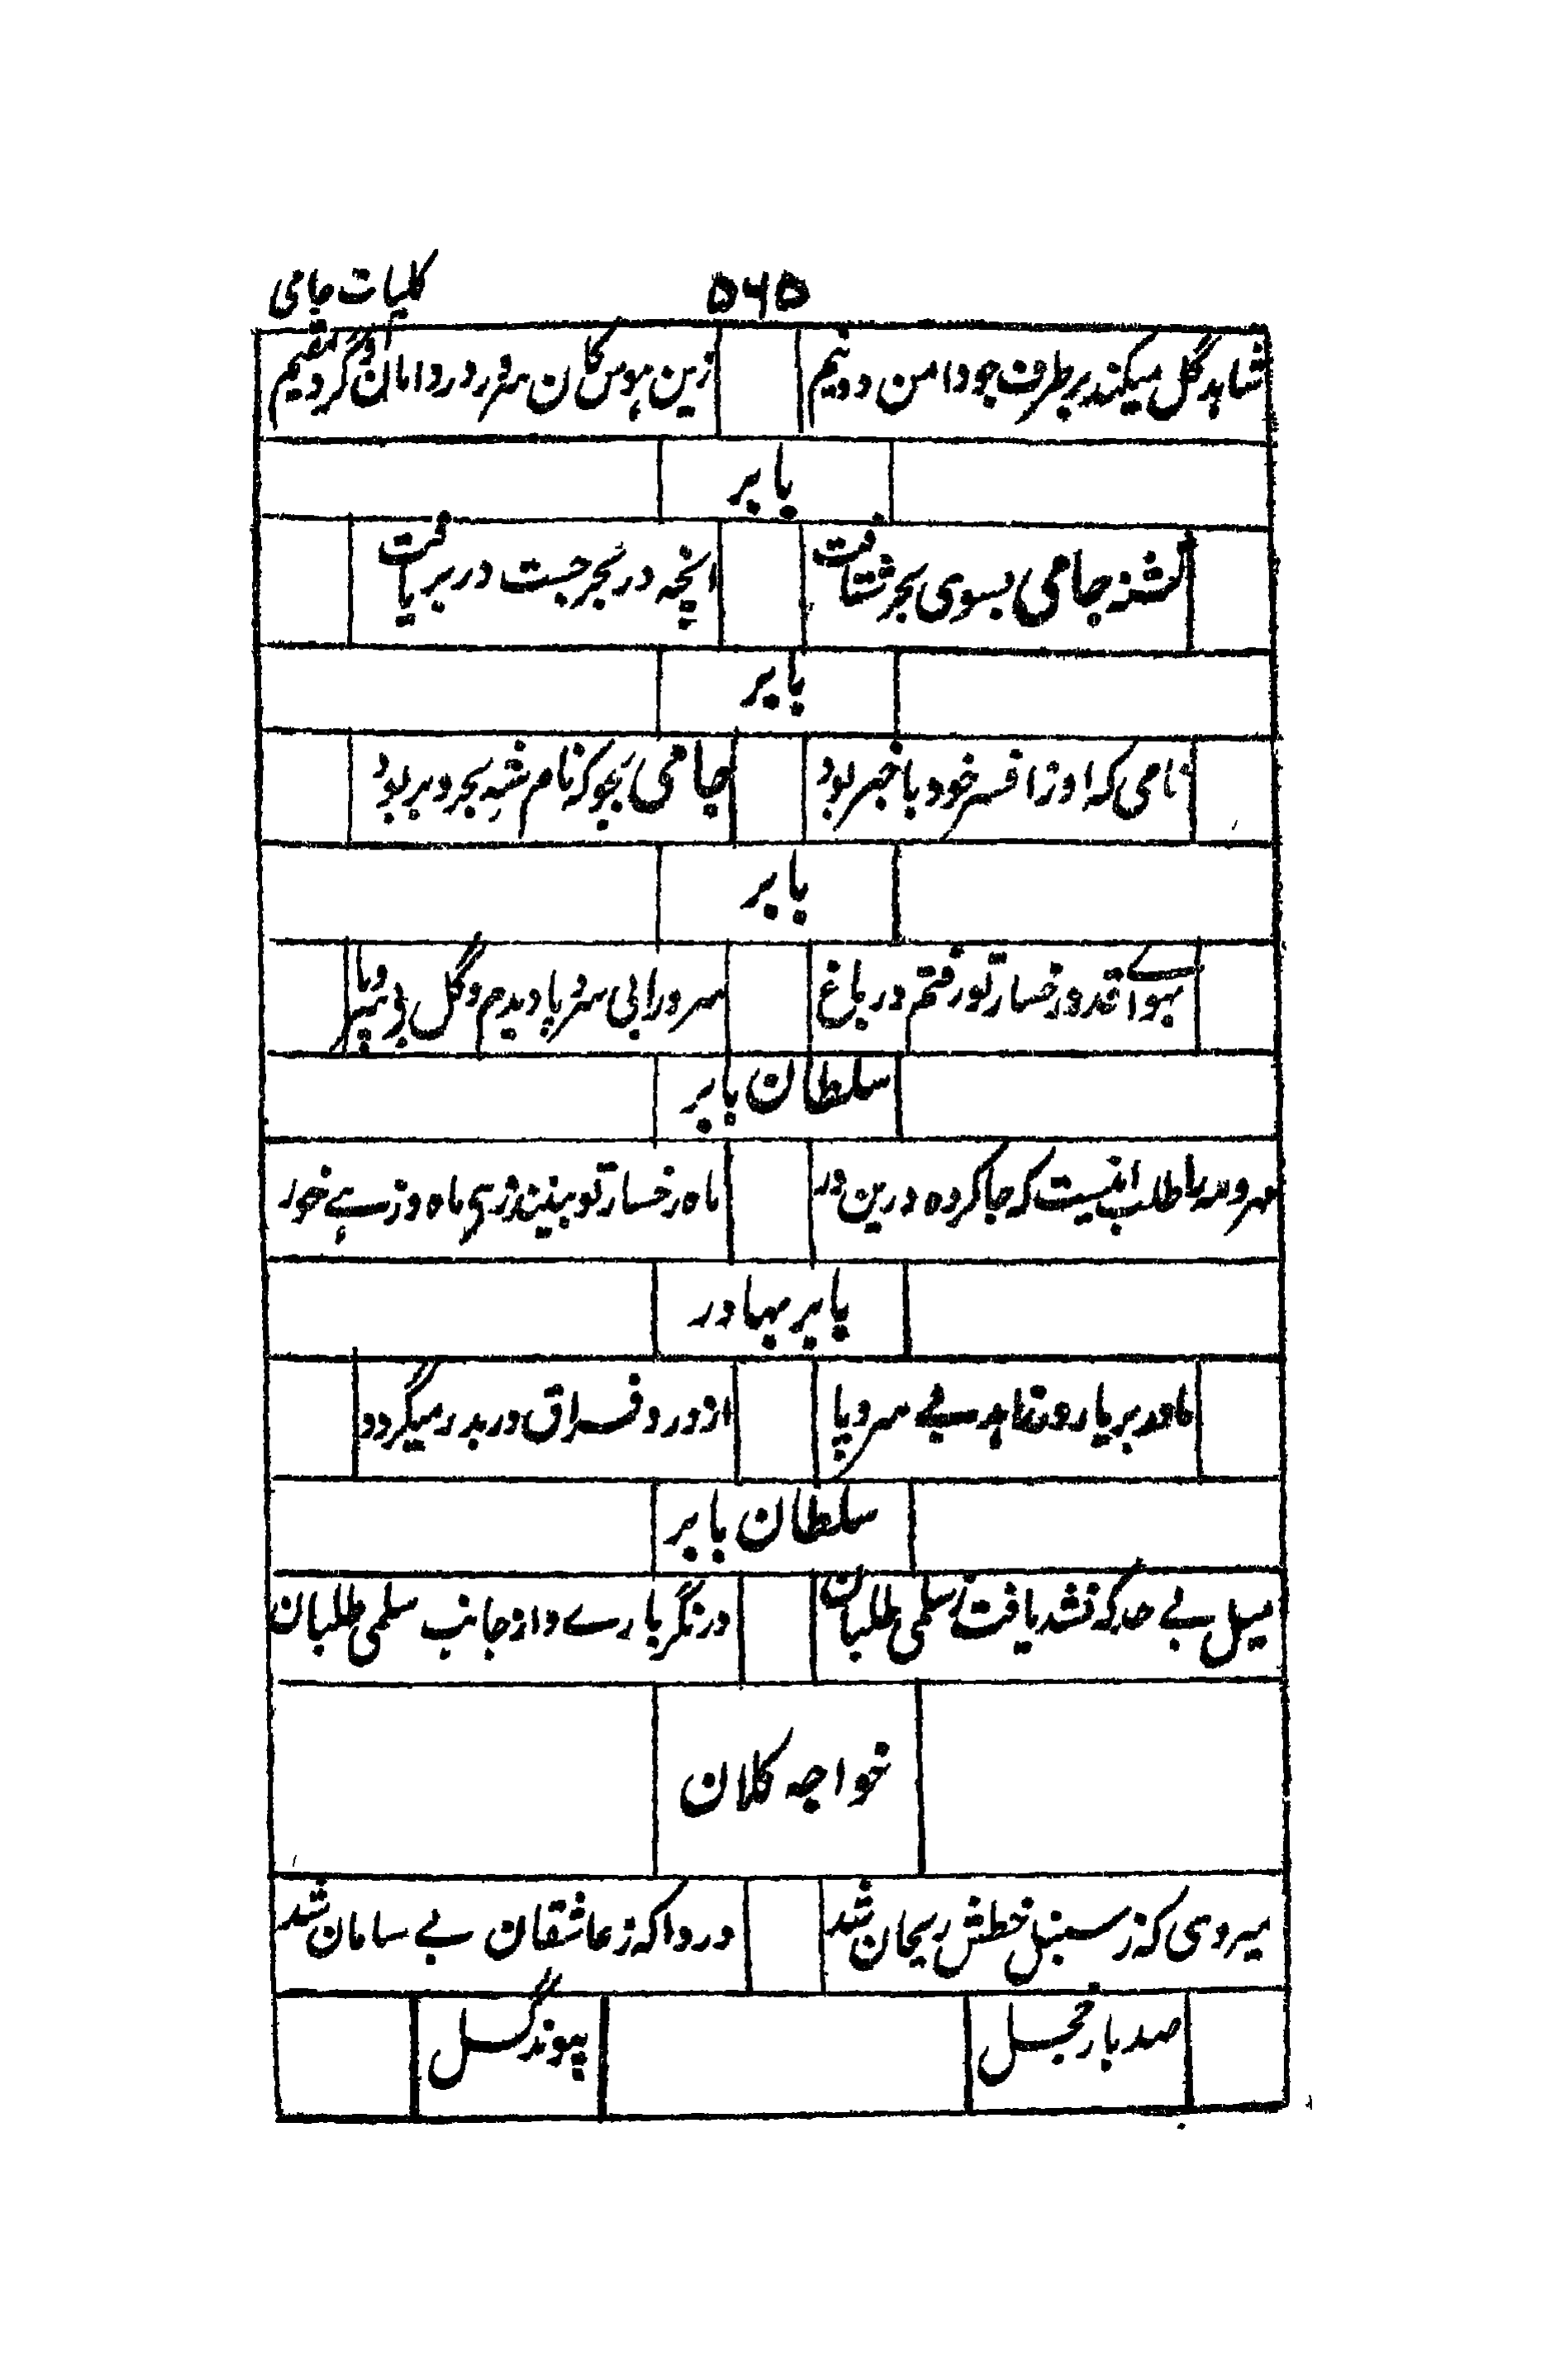 کلیات جامی
۵۶۵
شاہد گل میکند بر طرف جو دامن دو نیم
زین ہوس کان سرو در دامان گردیم
بابر
تشنہ جامی بسوی بحر شتافت
انچہ در بحر جست در بر یافت
بابر
نامی کہ او ز افسر خود با خبر بود
جامی بجو کہ نام شہ بحر و بر بود
بابر
بہواے قد و رخسار تو رفتم در باغ
سرو را بی سر و پا دیدم و گل بی سر و پا
سلطان بابر
مهر و مه را طلب اینست کہ جا کردہ درین در
ماہ رخسار تو بینند زہی ماہ و زہے خور
بابر بہادر
ما در بر یار و زاہد بے سر و پا
از درد فراق در بدر میگردد
سلطان بابر
میل بے حد کہ نشد یافت ز سلمی طلبان
در نگر بارے و از جانب سلمی طلبان
خواجہ کلان
میروی کہ ز سنبل خطش ریحان شد
دردا کہ ز عاشقان بے سامان شد
صد بار خجل
پیوند گسل